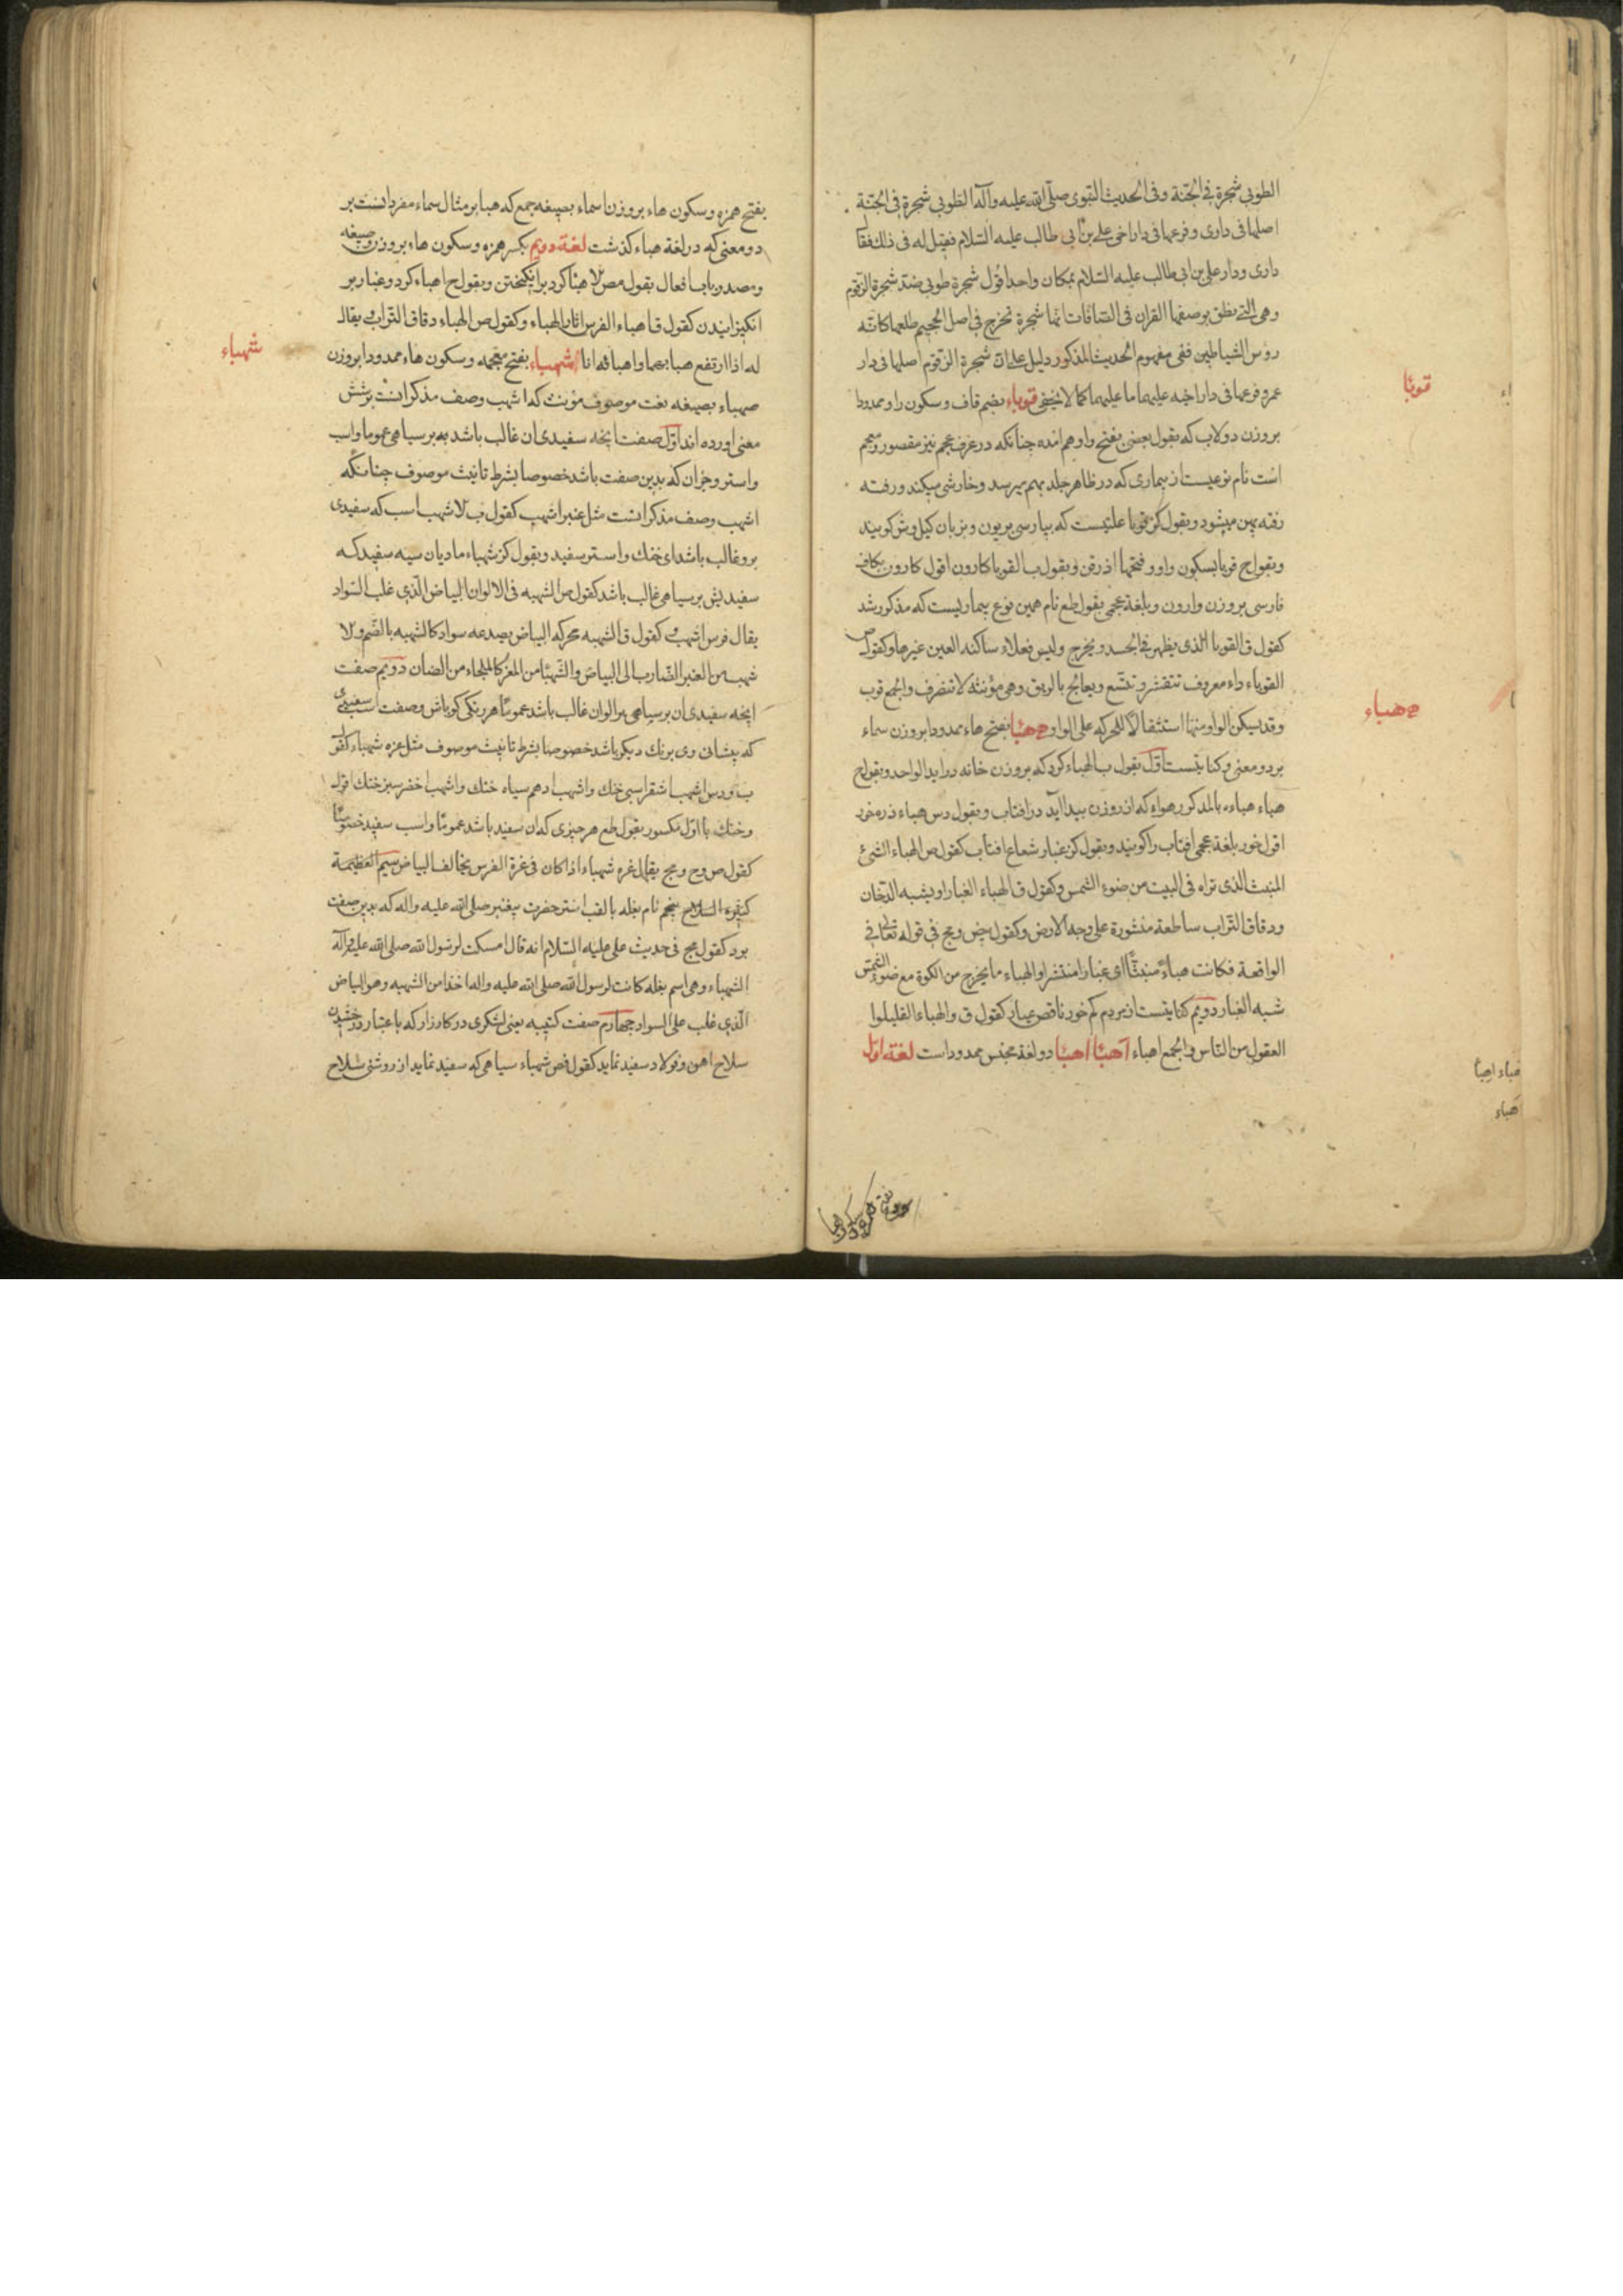 الطوبى شجرة فى الجنة وفى الحديث النبوى صلى الله عليه وآله الطوبى شجرة فى الجنة
اصلها فى دارى وفرعها فى دار اخى على بن ابى طالب عليه السلام فقيل له فى ذلك فقا
دارى ودار على بن ابى طالب عليه السلام بمكان واحد اقول شجرة طوبى ضد شجرة الزقوم
وهى التى نطق بوصفها القران فى الصافات انها شجرة تخرج فى اصل الجحيم طلعها كانه
رؤس الشياطين ففى مفهوم الحديث المذكور دليل على ان شجرة الزقوم اصلها فى دار
عمر وفرعها فى دار اخيه عليهما ما عليهما كما لا يخفى قوباء بضم قاف وسكون واو ممدودا
قوبا
بروزن دولاب كه بقول بعضى بفتح واو هم امده چنانكه در عرف عجم نيز مقصور
است نام نوعيست از بيمارى كه در ظاهر جلد بهم ميرسد وخارش ميكند ورفته
رفته پهن ميشود وبقول كز قوبا علتيست كه بپارسى بريون وبزبان كيل كويند
وبقول ج قوبا بسكون واو وفتحها اذرفن وبقول ب القوبا كارون اقول كارون بكاف
فارسى بروزن وارون وبلغة عجمى بقول طع نام همين نوع بيماريست كه مذكور شد
كقول ق القوبا الذى يظهر فى الجسد ويخرج وليس فعلاء ساكنه العين غيرها وكقول ص
القوباء داء معروف تتقشر وتتسع ويعالج بالريق وهى مؤنثه لا تنصرف والجمع قوب
وقد يسكن الواو منها استثقالا للحركه على الواو هبا بفتح هاء ممدودا بروزن سماء
هباء
بر دو معنى وكنايتست اول بقول ب الهباء كرد كه بروزن خانه درايد الواحد وبقول ج
هباء هباءه بالمد كور هواء كه از روزن بيدا آيد در افتاب وبقول دس هباء ذره خور
اقول خور بلغة عجمى افتاب را كويند وبقول كز غبار شعاع افتاب كقول ص الهباء الشئ
المنبث الذى تراه فى البيت من ضوء الشمس وكقول ق الهباء الغبار او يشبه الدخان
ودقاق التراب ساطعة منثورة على وجه الارض وكقول بيض ومج فى قوله تعالى فى
الواقعة فكانت هباء منبثا اى غبارا منتشرا والهباء ما يخرج من الكوة مع ضوء الشمس
شبه الغبار دويم كنايتست از مردم كم خور ناقص عيار كقول ق والهباء القليلوا
العقول من الناس والجمع اهباء آهبا اهبا دو لغة مجنس ممدود است لغة اول
هباء اهبا
هباء
بفتح همزه وسكون هاء بروزن اسماء بصيغه جمع كه هبا بر مثال سماء مفرد انست بر
دو معنى كه در لغة هباء كذشت لغة دويم بكسر همزه وسكون هاء بروزن وصيغه
ومصدر باب افعال بقول مص لا هبا كرد برانكيختن وبقول ج اهباء كرد وغبار بر
انكيزانيدن كقول ق اهباء الفرس اثار الهباء وكقول ص الهباء دقاق التراب ويقال
له اذا ارتفع هبا يهبو هبوا واهبائه انا شهباء بفتح معجمه وسكون هاء ممدودا بروزن
شهباء
صهباء بصيغه نعت موصوف مؤنث كه اشهب وصف مذكر انست بر شش
معنى اورده اند اول صفت انچه سفيدى ان غالب باشد به بر سياهى عموما واسب
واستر وخران كه بدين صفت باشد خصوصا بشرط تانيث موصوف چنانكه
اشهب وصف مذكر انست مثل عنبر اشهب كقول ب لا شهب اسب كه سفيدى
بر وغالب باشد اى خنك واستر سفيد وبقول كز شهباء ماديان سيه سفيد كه
سفيديش بر سياهى غالب باشد كقول ص الشهبه فى الالوان البياض الذى غلب السواد
يقال فرس اشهب وكقول ق الشهبه محركه البياض يصدعه سواد كالشهبه بالضم ولا
شهب من العنبر الضارب الى البياض والشهبا من المعز كالملحاء من الضان دويم صفت
انچه سفيدى ان بر سياهى بر الوان غالب باشد عموما هر رنكى كو باش وصفت اسب سفيدى
كه پيشانى وى برنك ديكر باشد خصوصا بشرط تانيث موصوف مثل غره شهباء كقو
ب ودس اشهب اشقر اسبى خنك واشهب ادهم سياه خنك واشهب اخضر سبز خنك اقول
وخنك با اول مكسور بقول طع هر چيزى كه ان سفيد باشد عموما واسب سفيد خصوصا
كقول ص وح ومج يقال غره شهباء اذا كان فى غرة الفرس يخالف البياض سيم العظيمة
كثيرة السلاح پنجم نام بغله با لقب استر حضرت پيغمبر صلى الله عليه واله كه بدين صفت
بود كقول مج فى حديث على عليه السلام انه قال امسكت لرسول الله صلى الله عليه وآله
الشهباء وهى اسم بغله كانت لرسول الله صلى الله عليه واله اخذا من الشهبه وهو البياض
الذى غلب على السواد چهارم صفت كتيبه يعنى لشكرى در كارزار كه باعتبار درخشيدن
سلاح اهن وفولاد سفيد نمايد كقول فص شهباء سياهى كه سفيد نمايد از روشنى سلاح